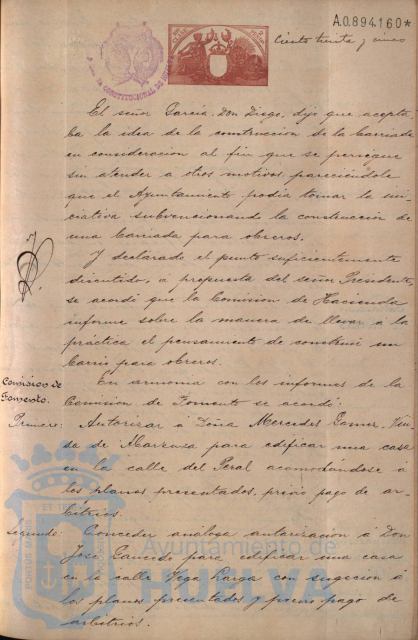 A.0.894.160*
Ciento treinta y cinco
El señor García, Don Diego, dijo que acepta-
ba la idea de la construccion de la Barriada
en consideracion al fin que se persigue
sin atender a otros motivos, pareciéndole
que el Ayuntamiento podia tomar la ini-
ciativa subvencionando la construccion de
una barriada para obreros.
Y declarado el punto suficientemente
discutido, á propuesta del señor Presidente,
se acordó que la Comision de Hacienda
informe sobre la manera de llevar á la
práctica el pensamiento de construir un
Barrio para obreros.
Comision de
Fomento.
En armonia con los informes de la
Comision de Fomento se acordó:
Primero: Autorizar á Doña Mercedes Viu-
da de para edificar una casa
en la calle del Peral acomodándose á
los planos presentados, previo pago de ar-
bitrios.
Segundo: Conceder análoga autorizacion á Don
José para edificar una casa
en la calle Vega Larga con sugecion á
los planos presentados y previo pago de
arbitrios.
Ayuntamiento de
HUELVA